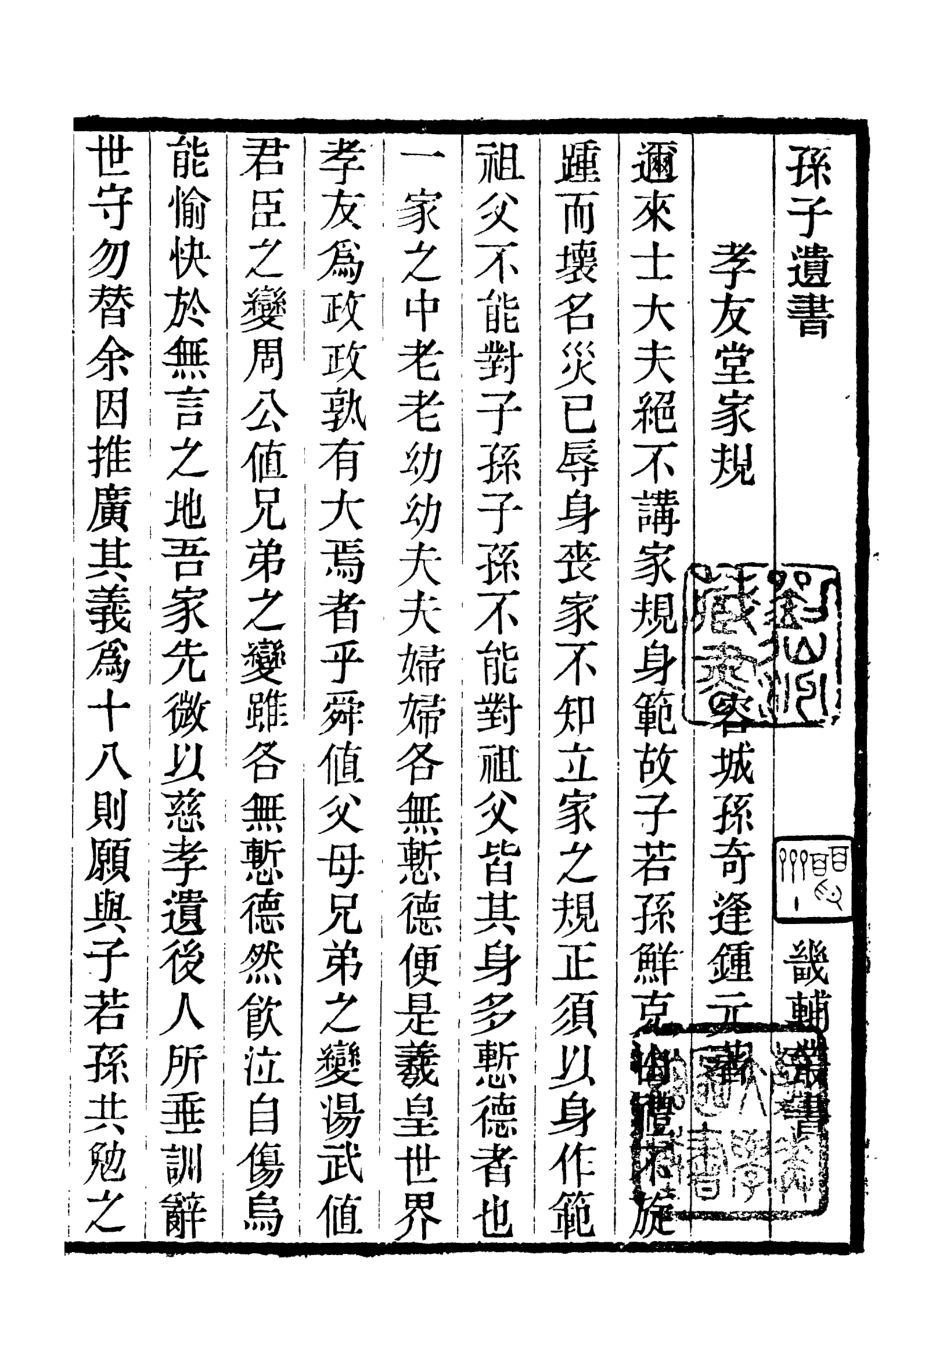 孫子遺書　畿輔叢書
孝友堂家規　容城孫奇逢鍾元著
邇來士大夫絕不講家規身範故子若孫鮮克由禮不旋
踵而壞名災已辱身喪家不知立家之規正須以身作範
祖父不能對子孫子孫不能對祖父皆其身多慙德者也
一家之中老老幼幼夫夫婦婦各無慙德便是羲皇世界
孝友爲政政孰有大焉者乎舜值父母兄弟之變湯武值
君臣之變周公值兄弟之變雖各無慙德然飮泣自傷烏
能愉快於無言之地吾家先微以慈孝遺後人所垂訓辭
世守勿替余因推廣其義爲十八則願與子若孫共勉之